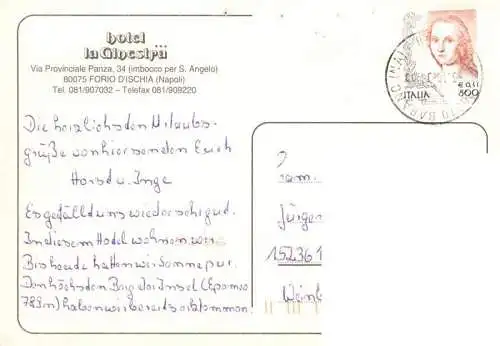 hotel
la Ginestra
Via Proviniciale Panza, 34 (imbocco per S. Angelo)
80075 FORIO D'ISCHIA (Napoli)
Tel. 081/907032 – Telefax 081/909220
Die herzlichsten Urlaubs-
grüße von hier senden Euch
Horst u. Inge
Es gefällt uns wieder sehr gut.
In diesem Hotel wohnen wir.
Bis heute hatten wir Sonne pur.
Den höchsten Berg der Insel (Epomeo
789m) haben wir bereits erklommen.
Fam.
Jürgen
15236
Wein
ITALIA
€ 0,41
800
BARANO